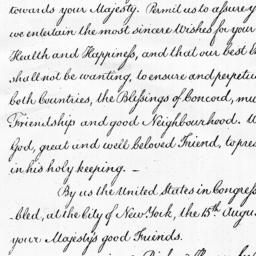 towards your Majesty. Permit us to assure y
we entertain the most sincere Wishes for your
Health and Happiness, and that our best
shall not be wanting, to ensure and perpetu
both Countries, the Blessings of Concord, mu
Friendship and good Neighbourhood. W
God, great and well beloved Friend, to pres
in his holy keeping. –
By us the United States in Congress
-bled, at the City of New York, the 15th Augus
your Majesty's good Friends.